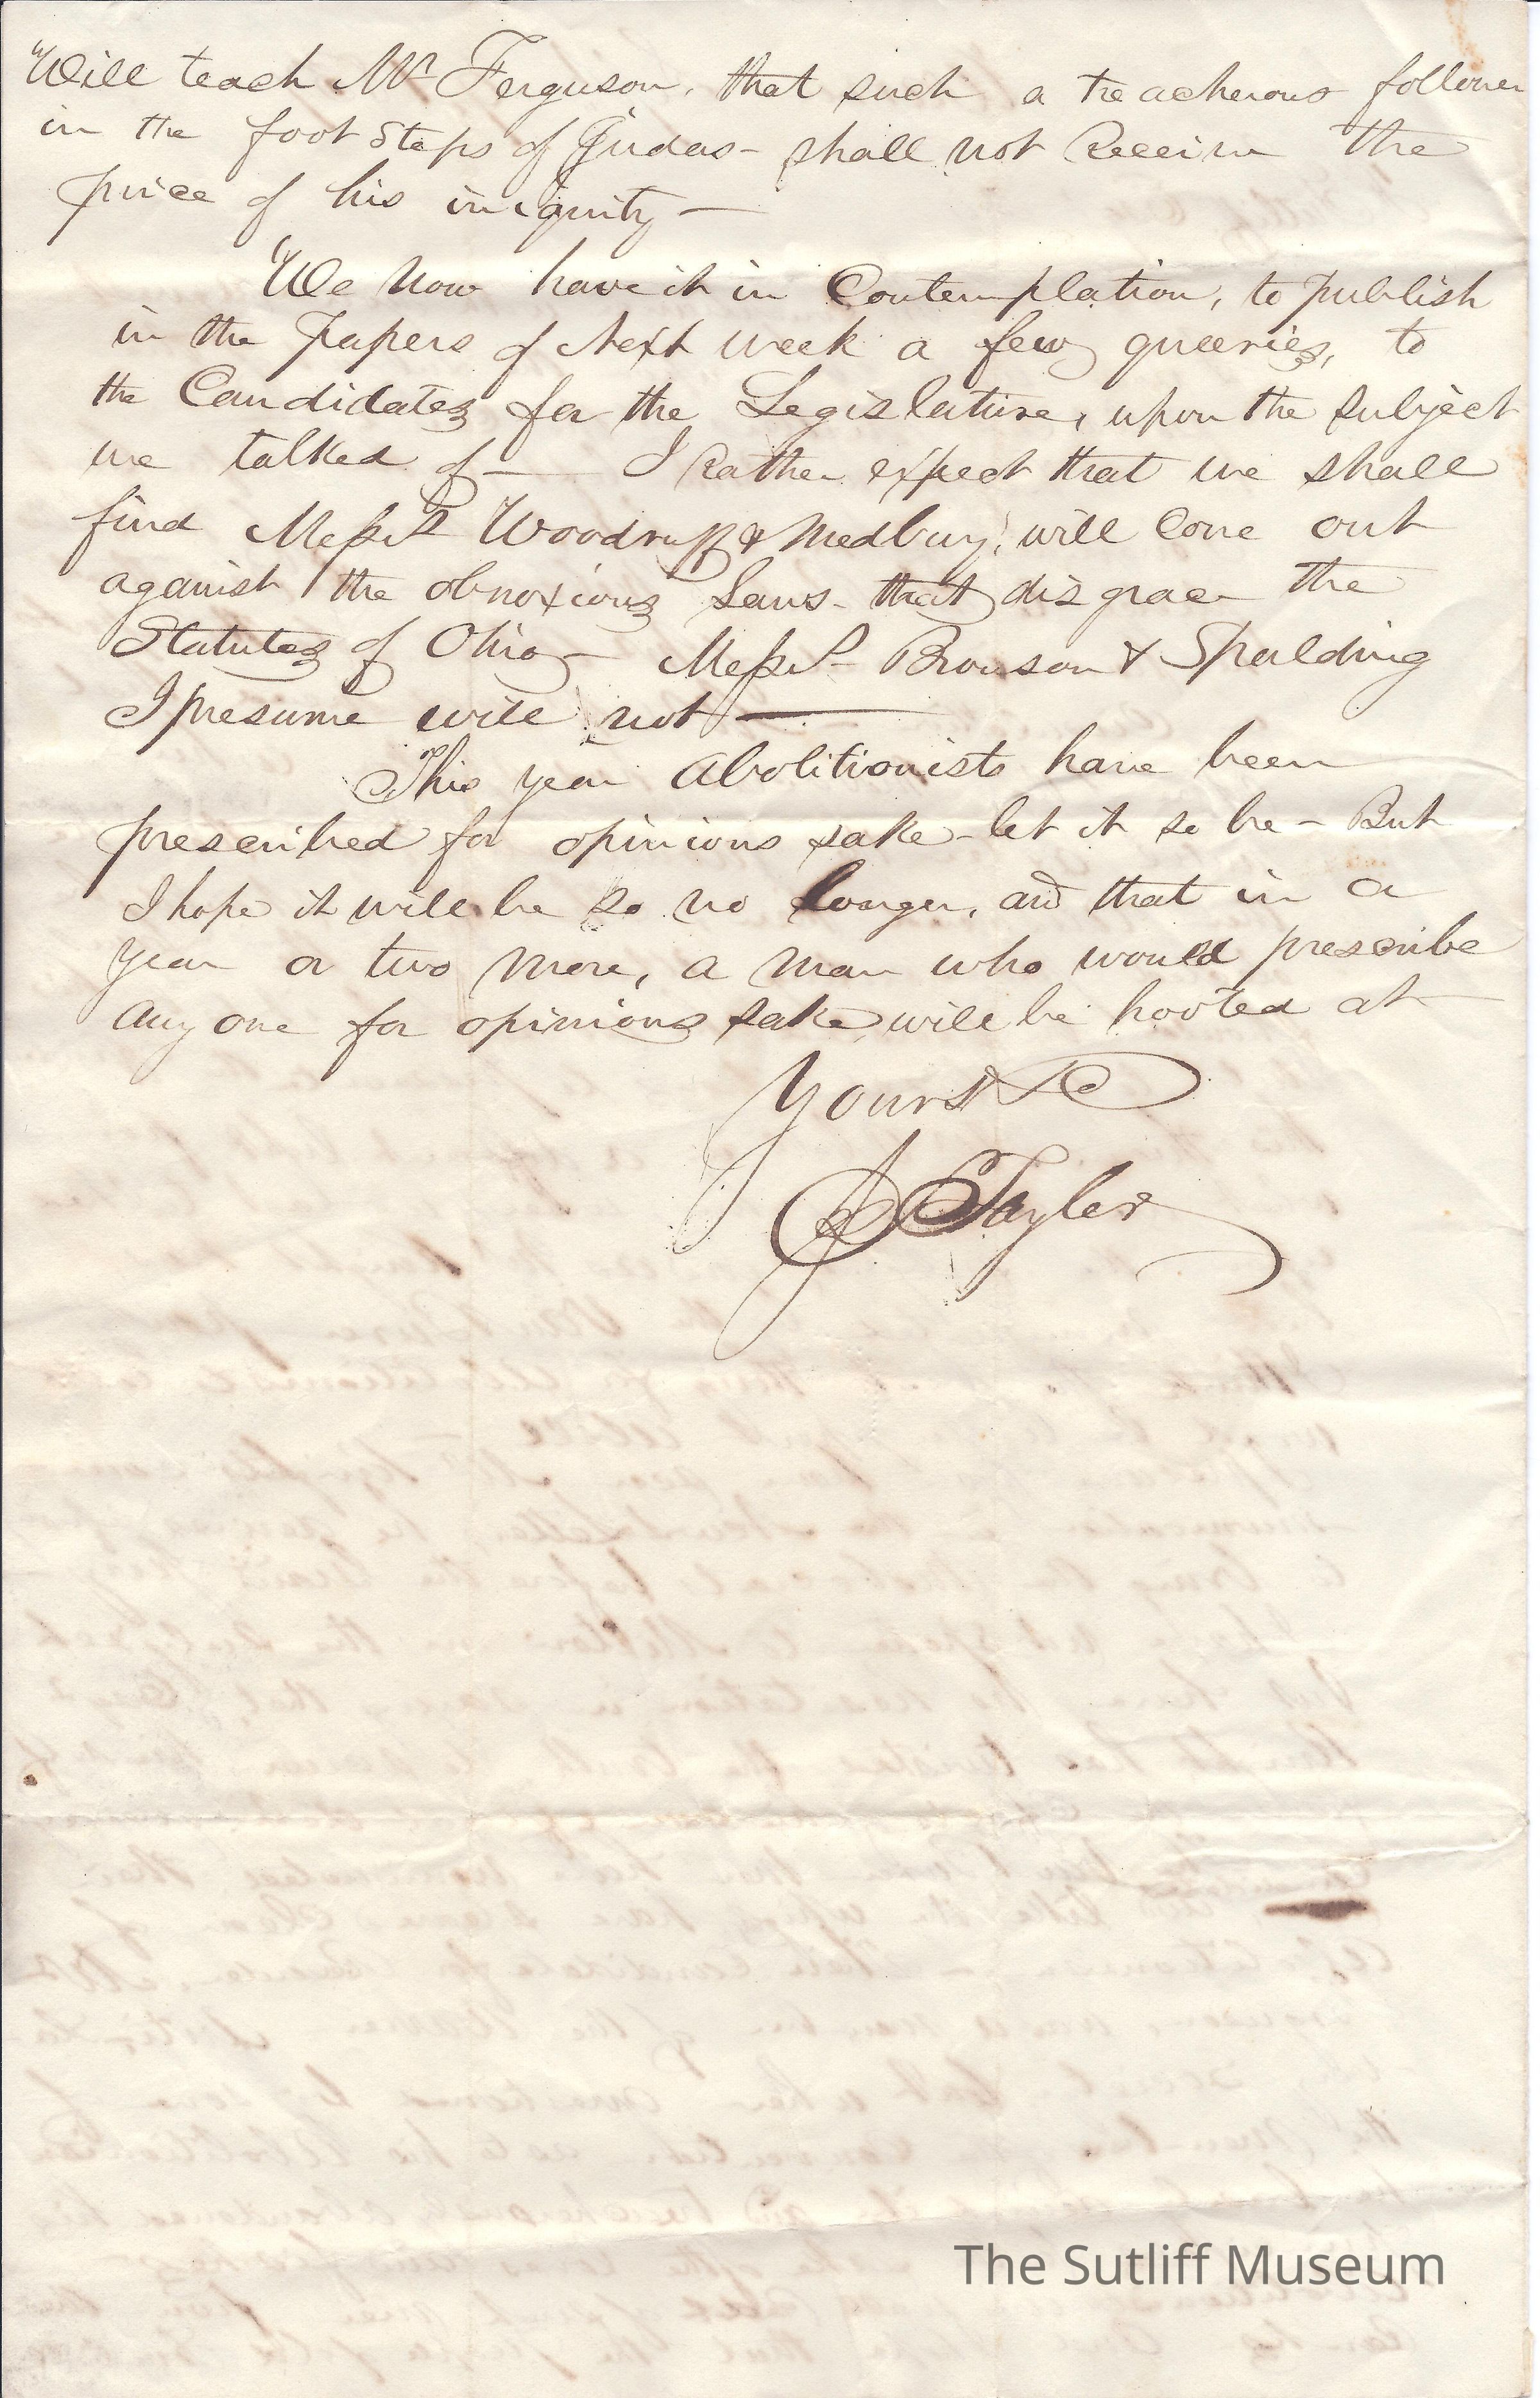 Will teach Mr Ferguson, that such a treacherous follower
in the foot steps of Judas - shall not Receive the
price of his iniquity —
We now have it in Contemplation, to publish
in the Papers of Next week a few queeries, to
the Candidates for the Legislature, upon the subject
we talked of — I Rather expect that we shall
find Messrs Woodruff & Medbury, will come out
against the obnoxious Laws - that disgrace the
Statutes of Ohio — Messrs - Bronson & Spalding
I presume will not —
This year Abolitionists have been
prescribed for opinions sake - let it so be - But
I hope it will be so no longer, and that in a
year or two more, a man who would prescribe
any one for opinions sake, will be hooted at
Yours &c
Taylor
The Sutliff Museum